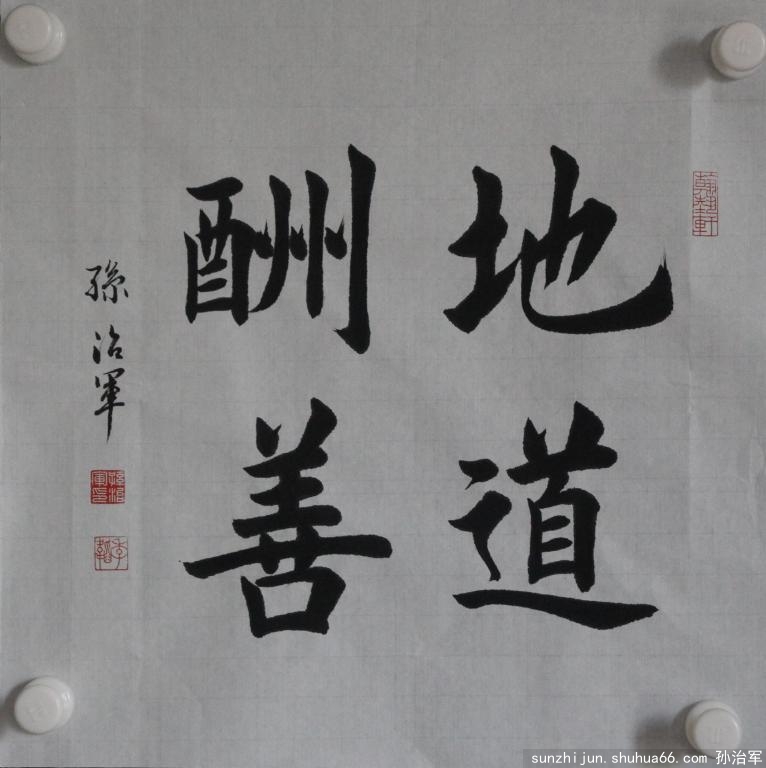 地道
酬善
孫治軍
sunzhijun.shuhua66.com 孙治军